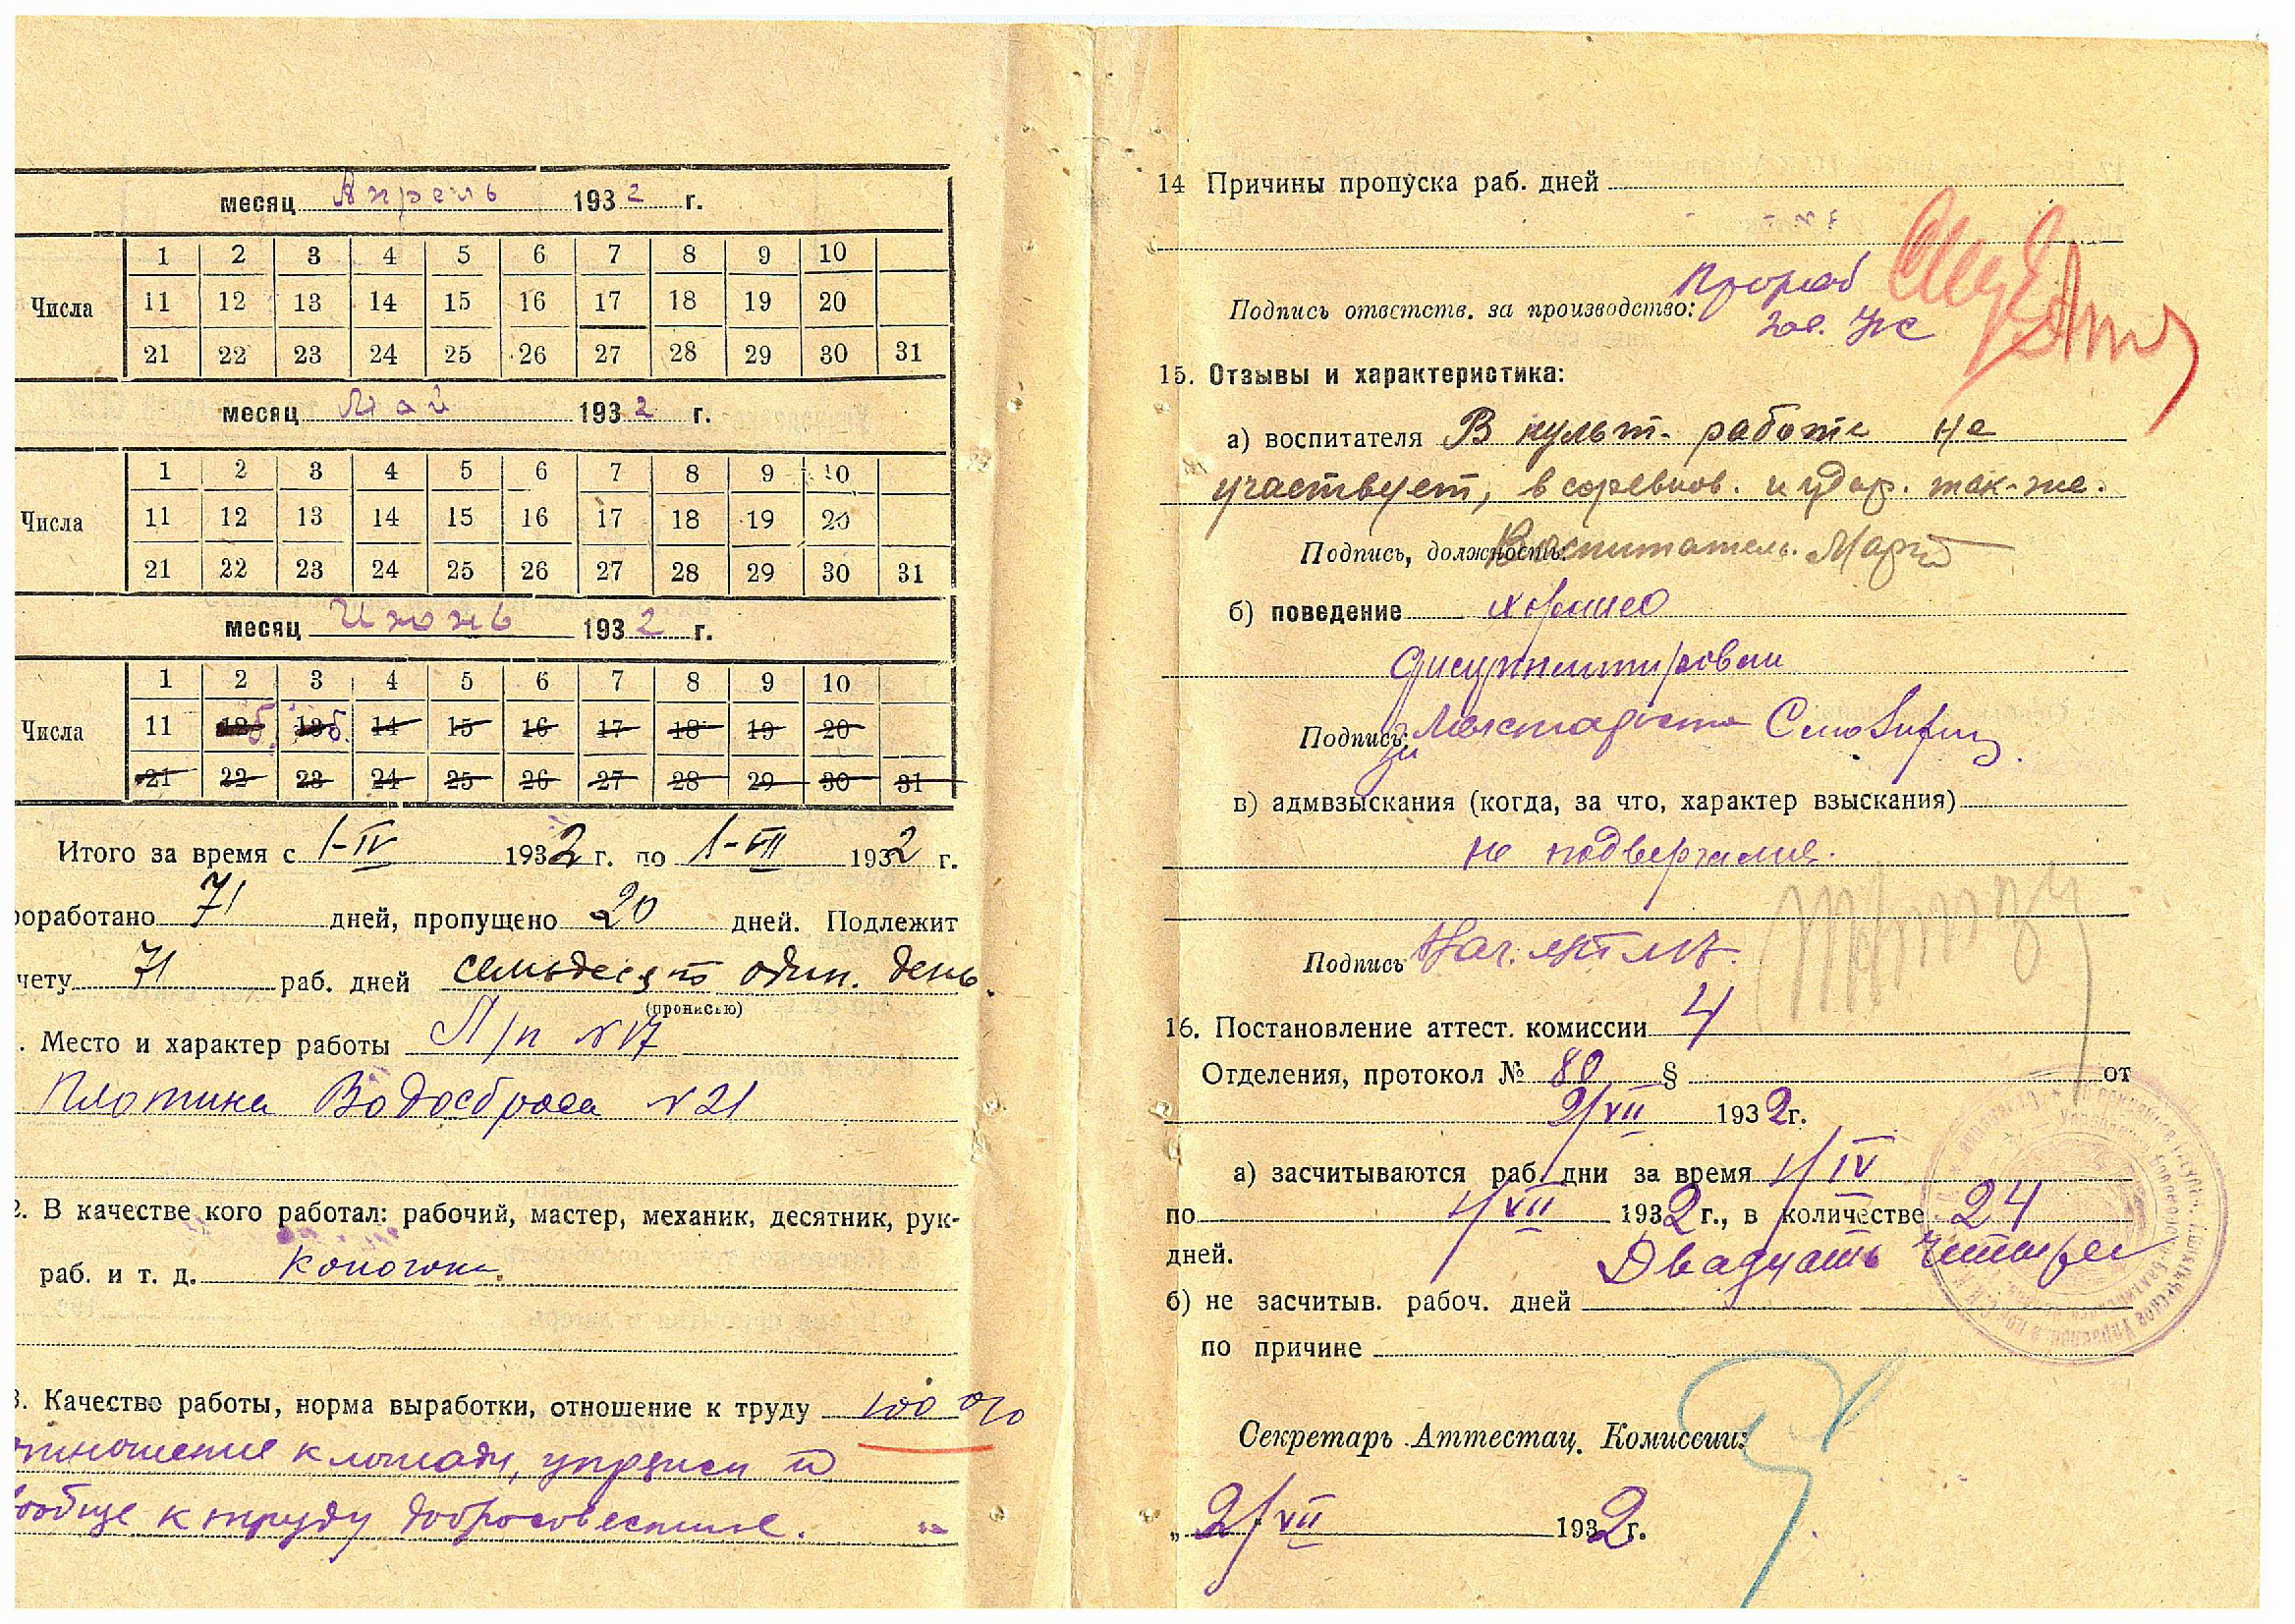 месяц Апрель 1932 г.
Числа
1 2 3 4 5 6 7 8 9 10
11 12 13 14 15 16 17 18 19 20
21 22 23 24 25 26 27 28 29 30 31
месяц Май 1932 г.
Числа
1 2 3 4 5 6 7 8 9 10
11 12 13 14 15 16 17 18 19 20
21 22 23 24 25 26 27 28 29 30 31
месяц Июнь 1932 г.
Числа
1 2 3 4 5 6 7 8 9 10
11 12 б. 13 б. 14 15 16 17 18 19 20
21 22 23 24 25 26 27 28 29 30 31
Итого за время с 1-IV 1932 г. по 1-VII 1932 г.
роработано 71 дней, пропущено 20 дней. Подлежит
чету 71 раб. дней семьдесят один. день.
(прописью)
. Место и характер работы Л/п №17
Плотина Водосброса №21
2. В качестве кого работал: рабочий, мастер, механик, десятник, рук-
раб. и т. д. коногон.
3. Качество работы, норма выработки, отношение к труду 100 %
отношение к лошади, упряжи и
вообще к труду добросовестное.
14 Причины пропуска раб. дней
Подпись ответств. за производство: Прораб
15. Отзывы и характеристика:
а) воспитателя В культ. работе не
участвует, в соревнов. и удар. так-же.
Подпись, должность: Воспитатель.
б) поведение хорошее
дисциплинирован
Подпись: за
в) адмвзыскания (когда, за что, характер взыскания)
не подвергался.
Подпись Нач.
16. Постановление аттест. комиссии 4
Отделения, протокол № 80 § от
2/VII 1932 г.
а) засчитываются раб. дни за время 1/IV
по 1/VII 1932 г., в количестве 24
дней. Двадцать четыре
б) не засчитыв. рабоч. дней
по причине
Секретарь Аттестац. Комиссии:
„ 2/VII 1932 г.